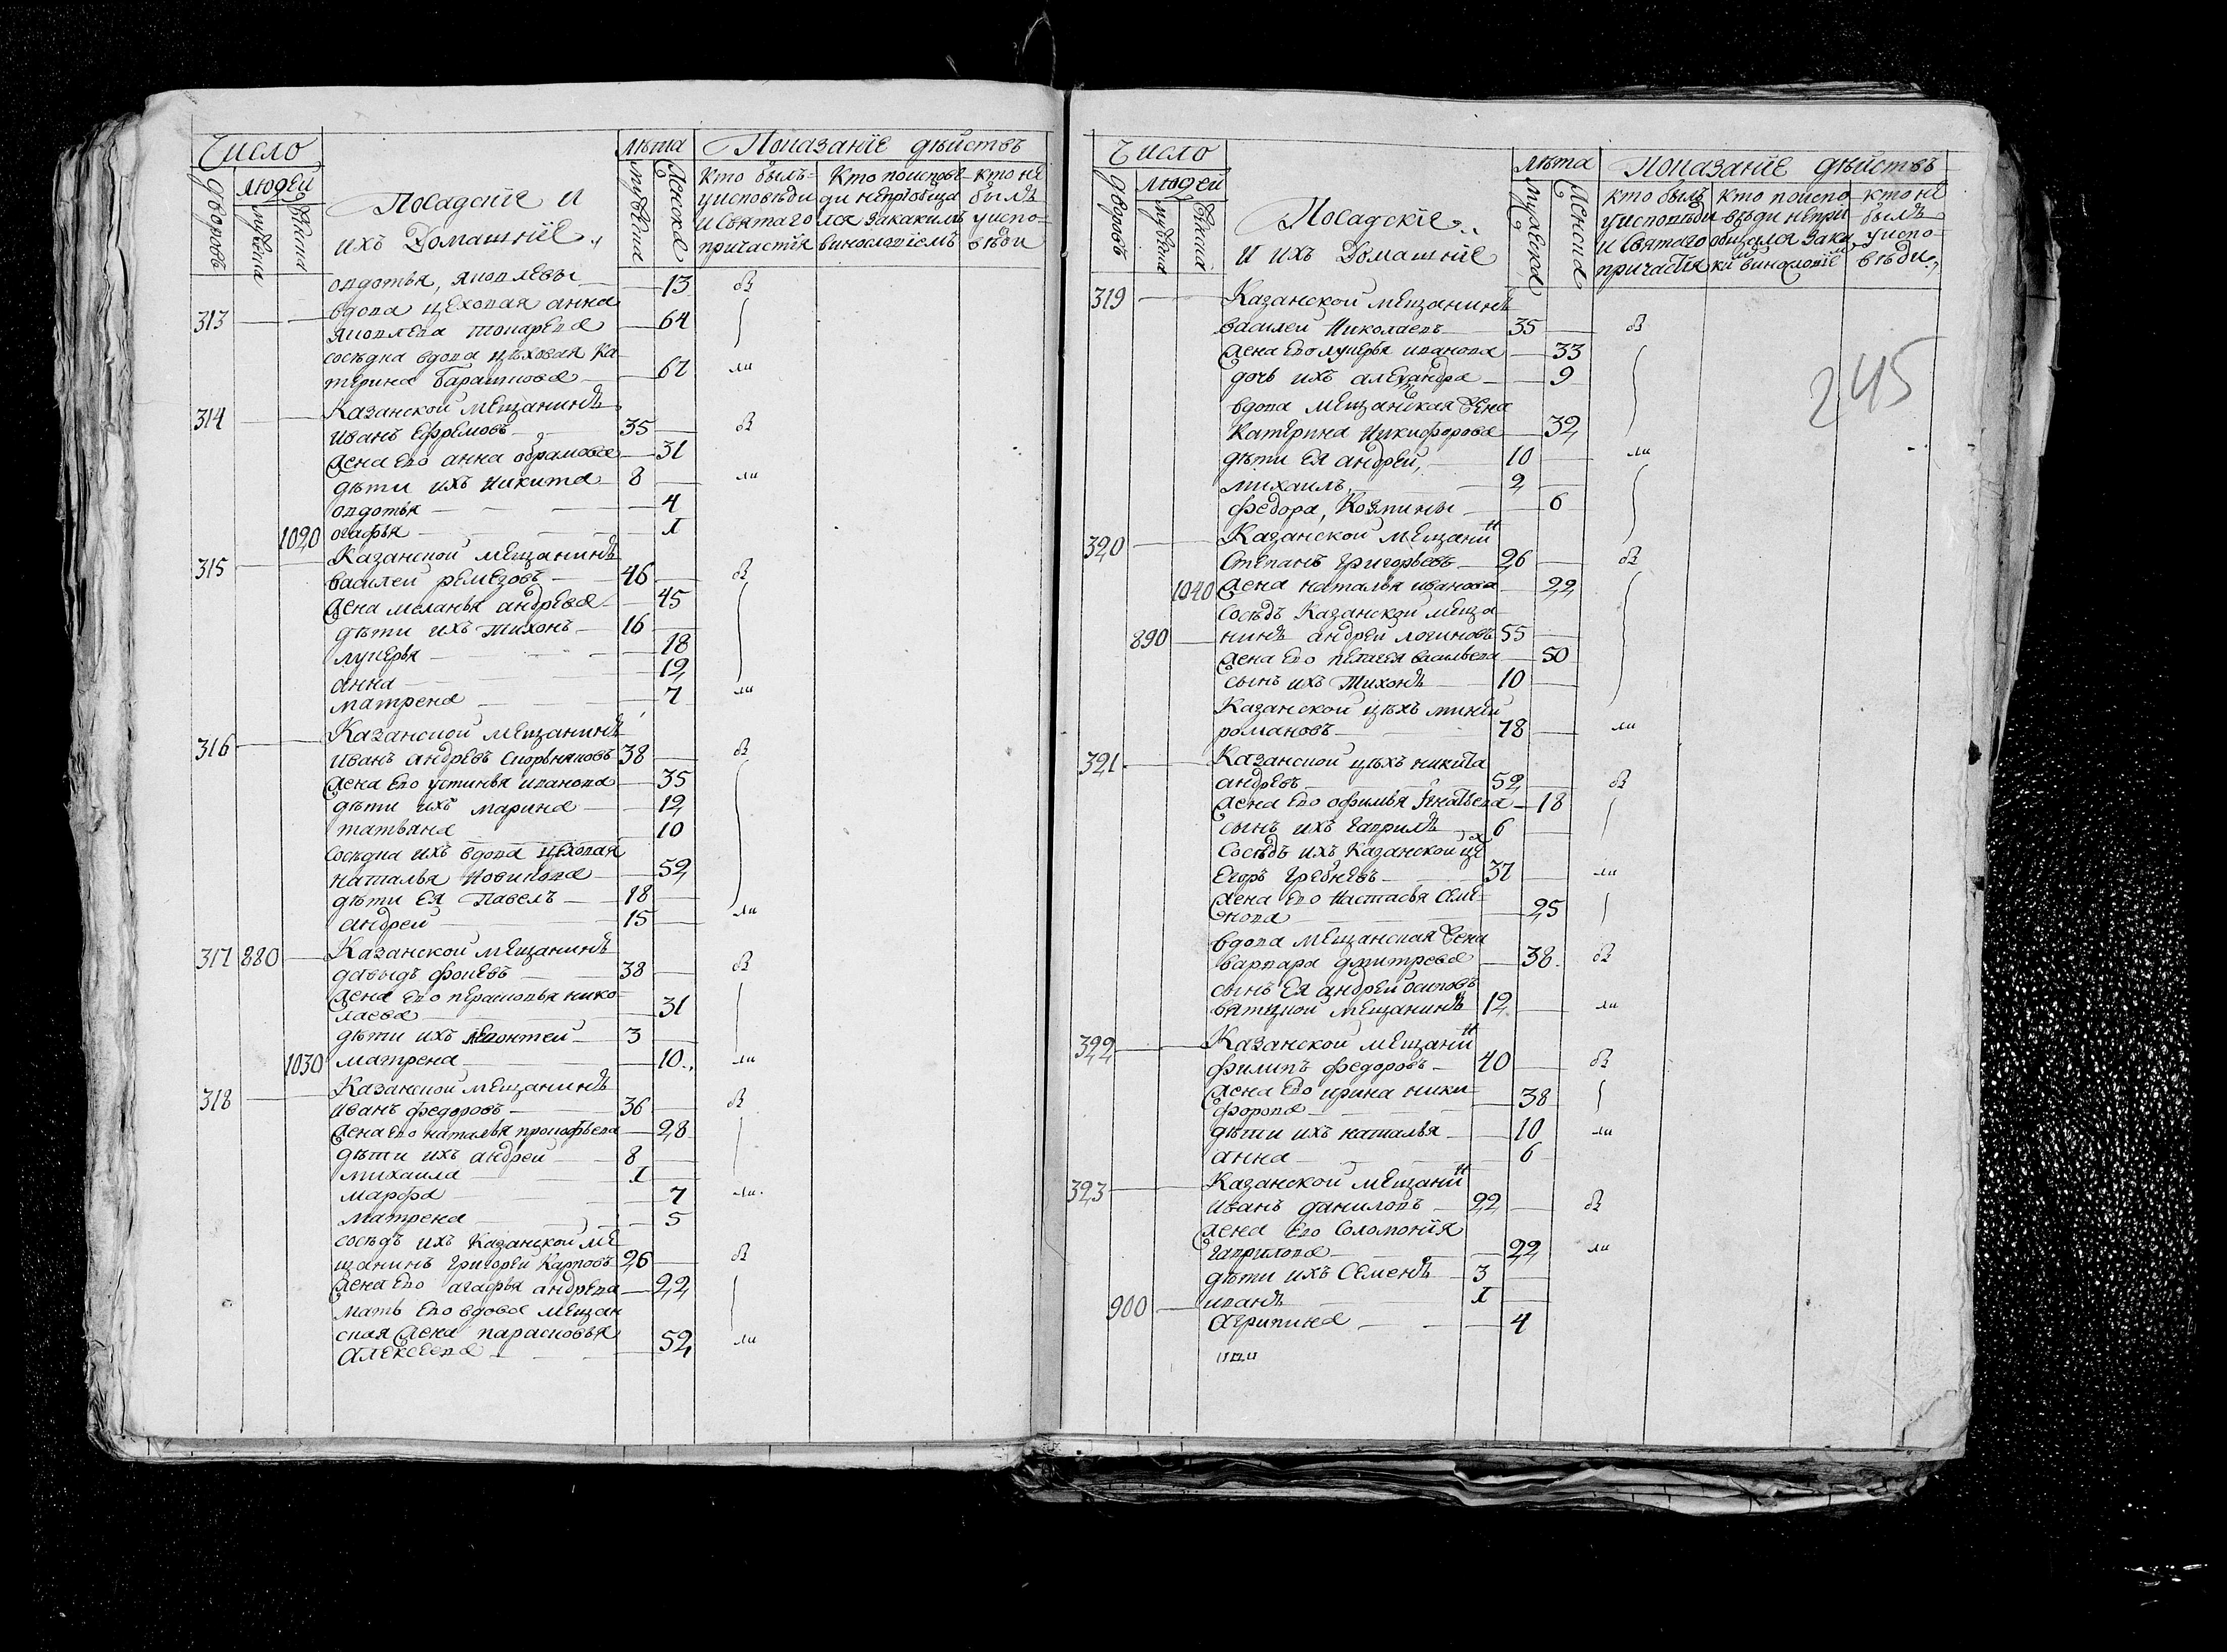 Число
людей
дворовъ
мужеска
женска
Посадскïе и
ихъ Домашнïе
лѣта
мужеска
женска
Показанïе дѣйствъ
кто былъ
у исповѣди
и святаго
причастïя
Кто по испове-
ди не прïобща
лся за какимъ
винословïемъ
кто не
былъ
у испо-
вѣди
овдотья, яковлевы 13 в
313 вдова цеховая анна
яковлева токарева 64
соседка вдова цѣховая Ка-
терина Барашкова 67 ли
314 Казанской мещанинъ
иванъ ефремовъ 35 в
жена его анна обрамова 31
дѣти ихъ никита 8 ли
овдотья 4
1020 огафья 1
315 Казанской мещанинъ
василей ремезовъ 46 в
жена меланья андрева 45
дѣти ихъ тихонъ 16
лукерья 18
анна 12
матрена 7 ли
316 Казанской мещанинъ
иванъ андревъ скорняковъ 38 в
жена его устинья иванова 35
дѣти ихъ марина 12
татьяна 10
соседка ихъ вдова цеховая
наталья новикова 52
дѣти ея Павелъ 18
андрей 15 ли
317 880 Казанской мещанинъ
давыдъ фокевъ 38 в
жена его перасковья нико-
лаева 31
дѣти ихъ леонтей 3
1030 матрена 10 ли
318 Казанской мещанинъ
иванъ федоровъ 36 в
жена его наталья прокофьева 28
дѣти ихъ андрей 8
михаила 1
марфа 7 ли
матрена 5
соседъ ихъ Казанской ме
щанинъ григорей Карповъ 26 в
жена его агафья андрева 22
мать его вдова мещан
ская жена парасковья
Алексеева 52 ли
Число
людей
дворовъ
мужеска
женска
Посадскïе
и ихъ Домашнïе
лѣта
мужеска
женска
Показанïе дѣйствъ
кто былъ
у исповѣди
и святаго
причастïя
кто по испо-
вѣди не прï
общался за ка
кимъ винословïе
кто не
былъ
у испо-
вѣди
245
319 Казанской мещанинъ
василей Николаевъ 35 в
жена его лукерья иванова 33
дочь ихъ александра 9
вдова мещанская жена
Катерина Никифорова 32
дѣти ея андрей, 10 ли
михаилъ, 2
федора, Козмины 6
320 Казанской мещани н
Степанъ григорьевъ 26 в
1040 жена наталья иванова 22
Соседъ Казанской меща
890 нинъ андрей логиновъ 55
жена его пелагея васильева 50
сынъ ихъ Тихонъ 10
Казанской цѣхъ миней
романовъ 78 ли
321 Казанской цѣхъ никита
андревъ 52 в
жена его офимья игнатьева 18
сынъ ихъ гаврилъ 6
Соседъ ихъ Казанской це х
Егоръ гребневъ 37 ли
жена его Настасья Семе-
нова 25
вдова мещанская жена
варвара дмитрева 38 в
сынъ ея андрей осиповъ
вятцкой мещанинъ 12 ли
322 Казанской мещани н
филипъ федоровъ 40 в
жена его ирина ники-
форова 38
дѣти ихъ наталья 10 ли
анна 6
323 Казанской мещани н
иванъ даниловъ 22 в
жена его Соломонïя
гаврилова 22 ли
дѣти ихъ Семенъ 3
900 иванъ 1
Агрипина 4